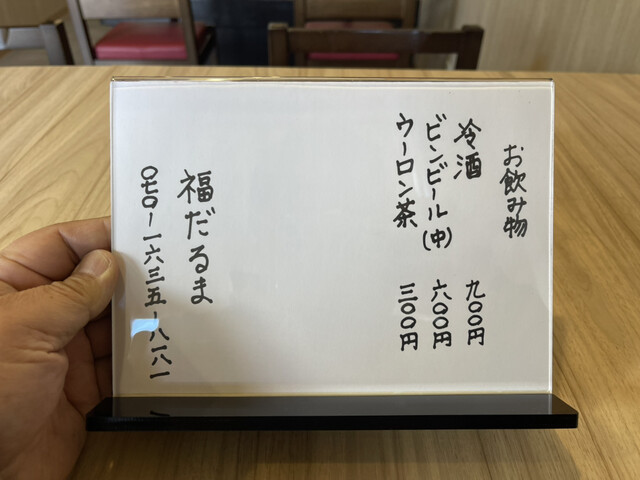 お飲み物
冷酒 九〇〇円
ビンビール(中) 六〇〇円
ウーロン茶 三〇〇円
福だるま
〇七〇-一六三五-八一八一